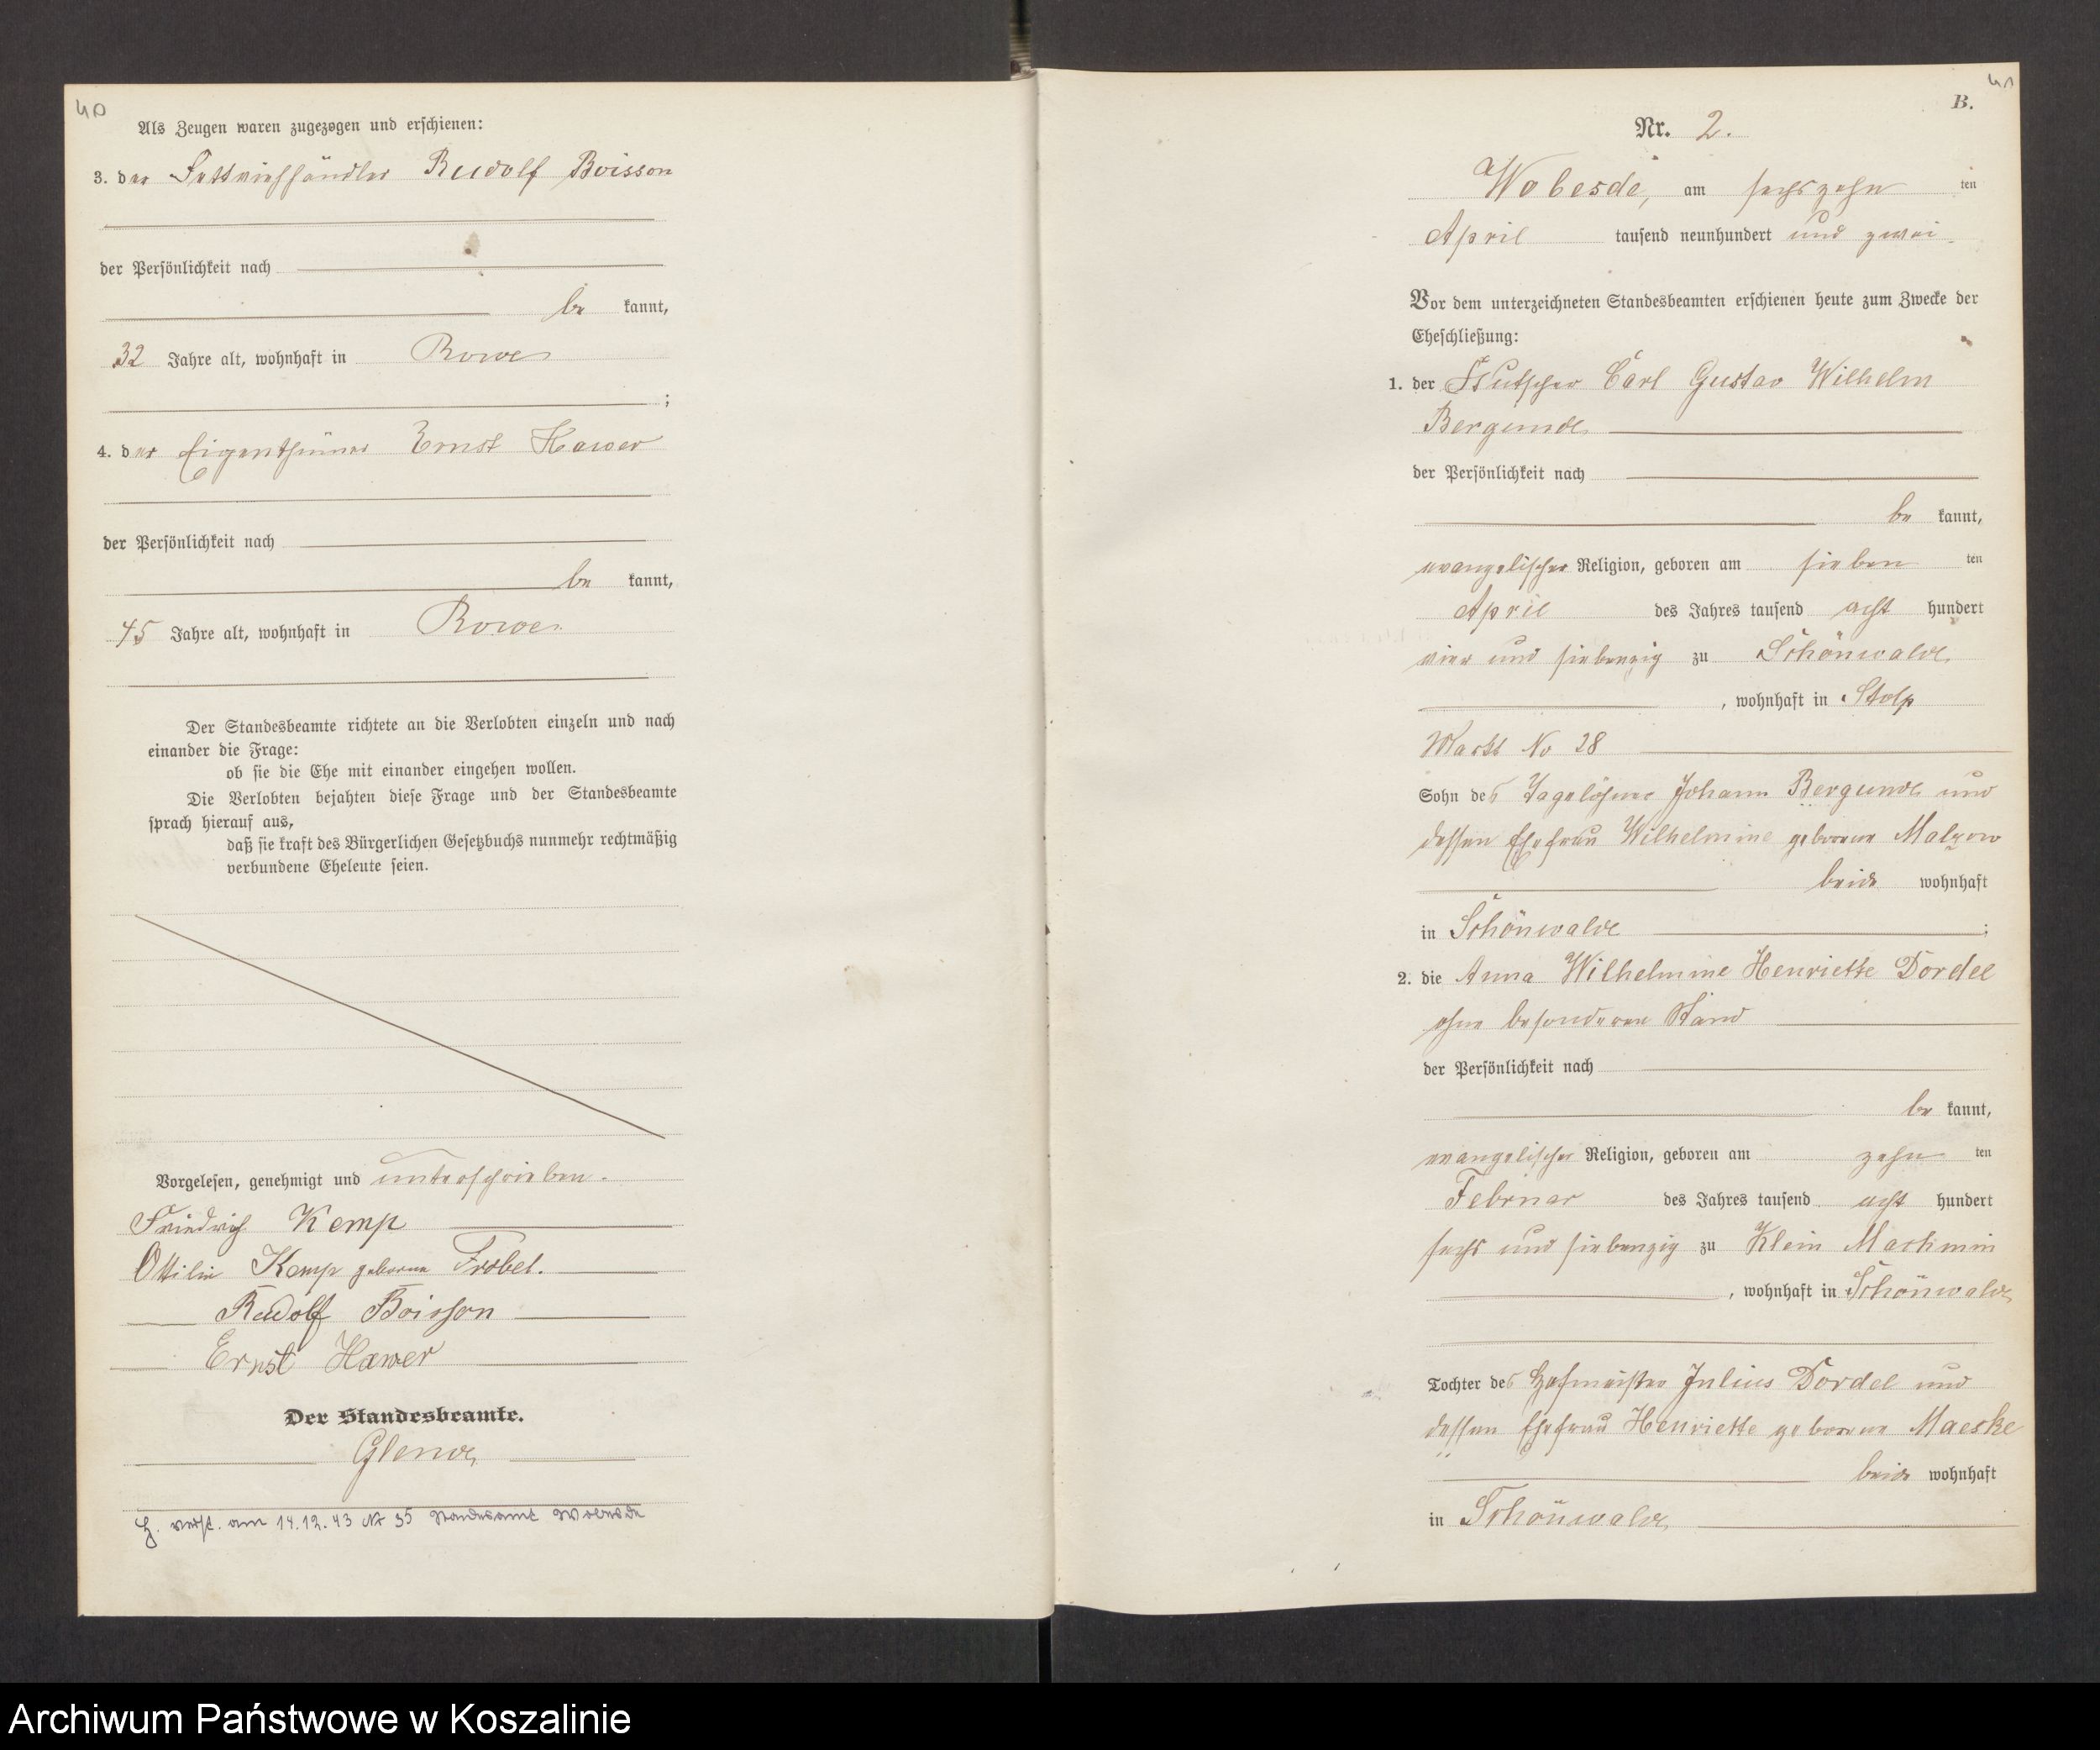 40
Als Zeugen waren zugezogen und erschienen:
3. der Fettviehhändler Rudolf Boisson
der Persönlichkeit nach
be kannt,
32 Jahre alt, wohnhaft in Rowe
;
4. der Eigenthümer Ernst Hawer
der Persönlichkeit nach
be kannt,
45 Jahre alt, wohnhaft in Rowe
Der Standesbeamte richtete an die Verlobten einzeln und nach
einander die Frage:
ob sie die Ehe mit einander eingehen wollen.
Die Verlobten bejahten diese Frage und der Standesbeamte
sprach hierauf aus,
daß sie kraft des Bürgerlichen Gesetzbuchs nunmehr rechtmäßig
verbundene Eheleute seien.
Vorgelesen, genehmigt und unterschrieben.
Friedrich Kemp
Ottilie Kemp geborene Fröbel.
Rudolf Boisson
Ernst Hawer
Der Standesbeamte.
Glende
verst. am 14.12.43 Nr 35 Standesamt Wobesde
41
B.
Nr. 2.
Wobesde, am sechszehn ten
April tausend neunhundert und zwei
Vor dem unterzeichneten Standesbeamten erschienen heute zum Zwecke der
Eheschließung:
1. der Kutscher Carl Gustav Wilhelm
Bergunde
der Persönlichkeit nach
be kannt,
evangelischer Religion, geboren am sieben ten
April des Jahres tausend acht hundert
vier und siebenzig zu Schönwalde
, wohnhaft in Stolp
Markt No 28
Sohn des Tagelöhner Johann Bergunde und
dessen Ehefrau Wilhelmine geborene Malzow
beide wohnhaft
in Schönwalde ;
2. die Anna Wilhelmine Henriette Dordel
ohne besonderen Stand
der Persönlichkeit nach
be kannt,
evangelischer Religion, geboren am zehn ten
Februar des Jahres tausend acht hundert
sechs und siebenzig zu Klein Machmin
, wohnhaft in Schönwalde
Tochter des Hofmeister Julius Dordel und
dessen Ehefrau Henriette geborene Maeske
beide wohnhaft
in Schönwalde
Archiwum Państwowe w Koszalinie